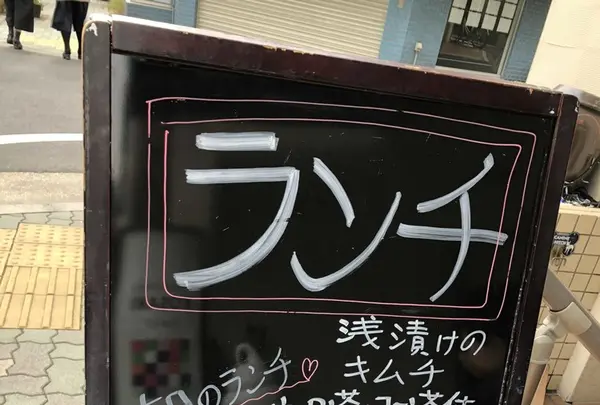 ランチ
浅漬けの
キムチ
のランチ♡